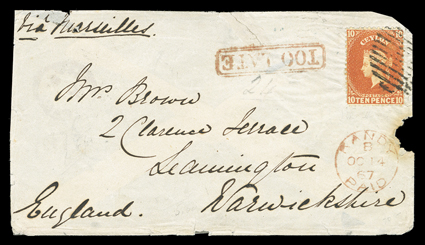 via Marseilles.
TOO LATE
10 CEYLON 10
10 TEN PENCE 10
Mrs Brown
2 Clarence Terrace
Leamington
Warwickshire
England.
KANDY
B
OC 14
67
PAID